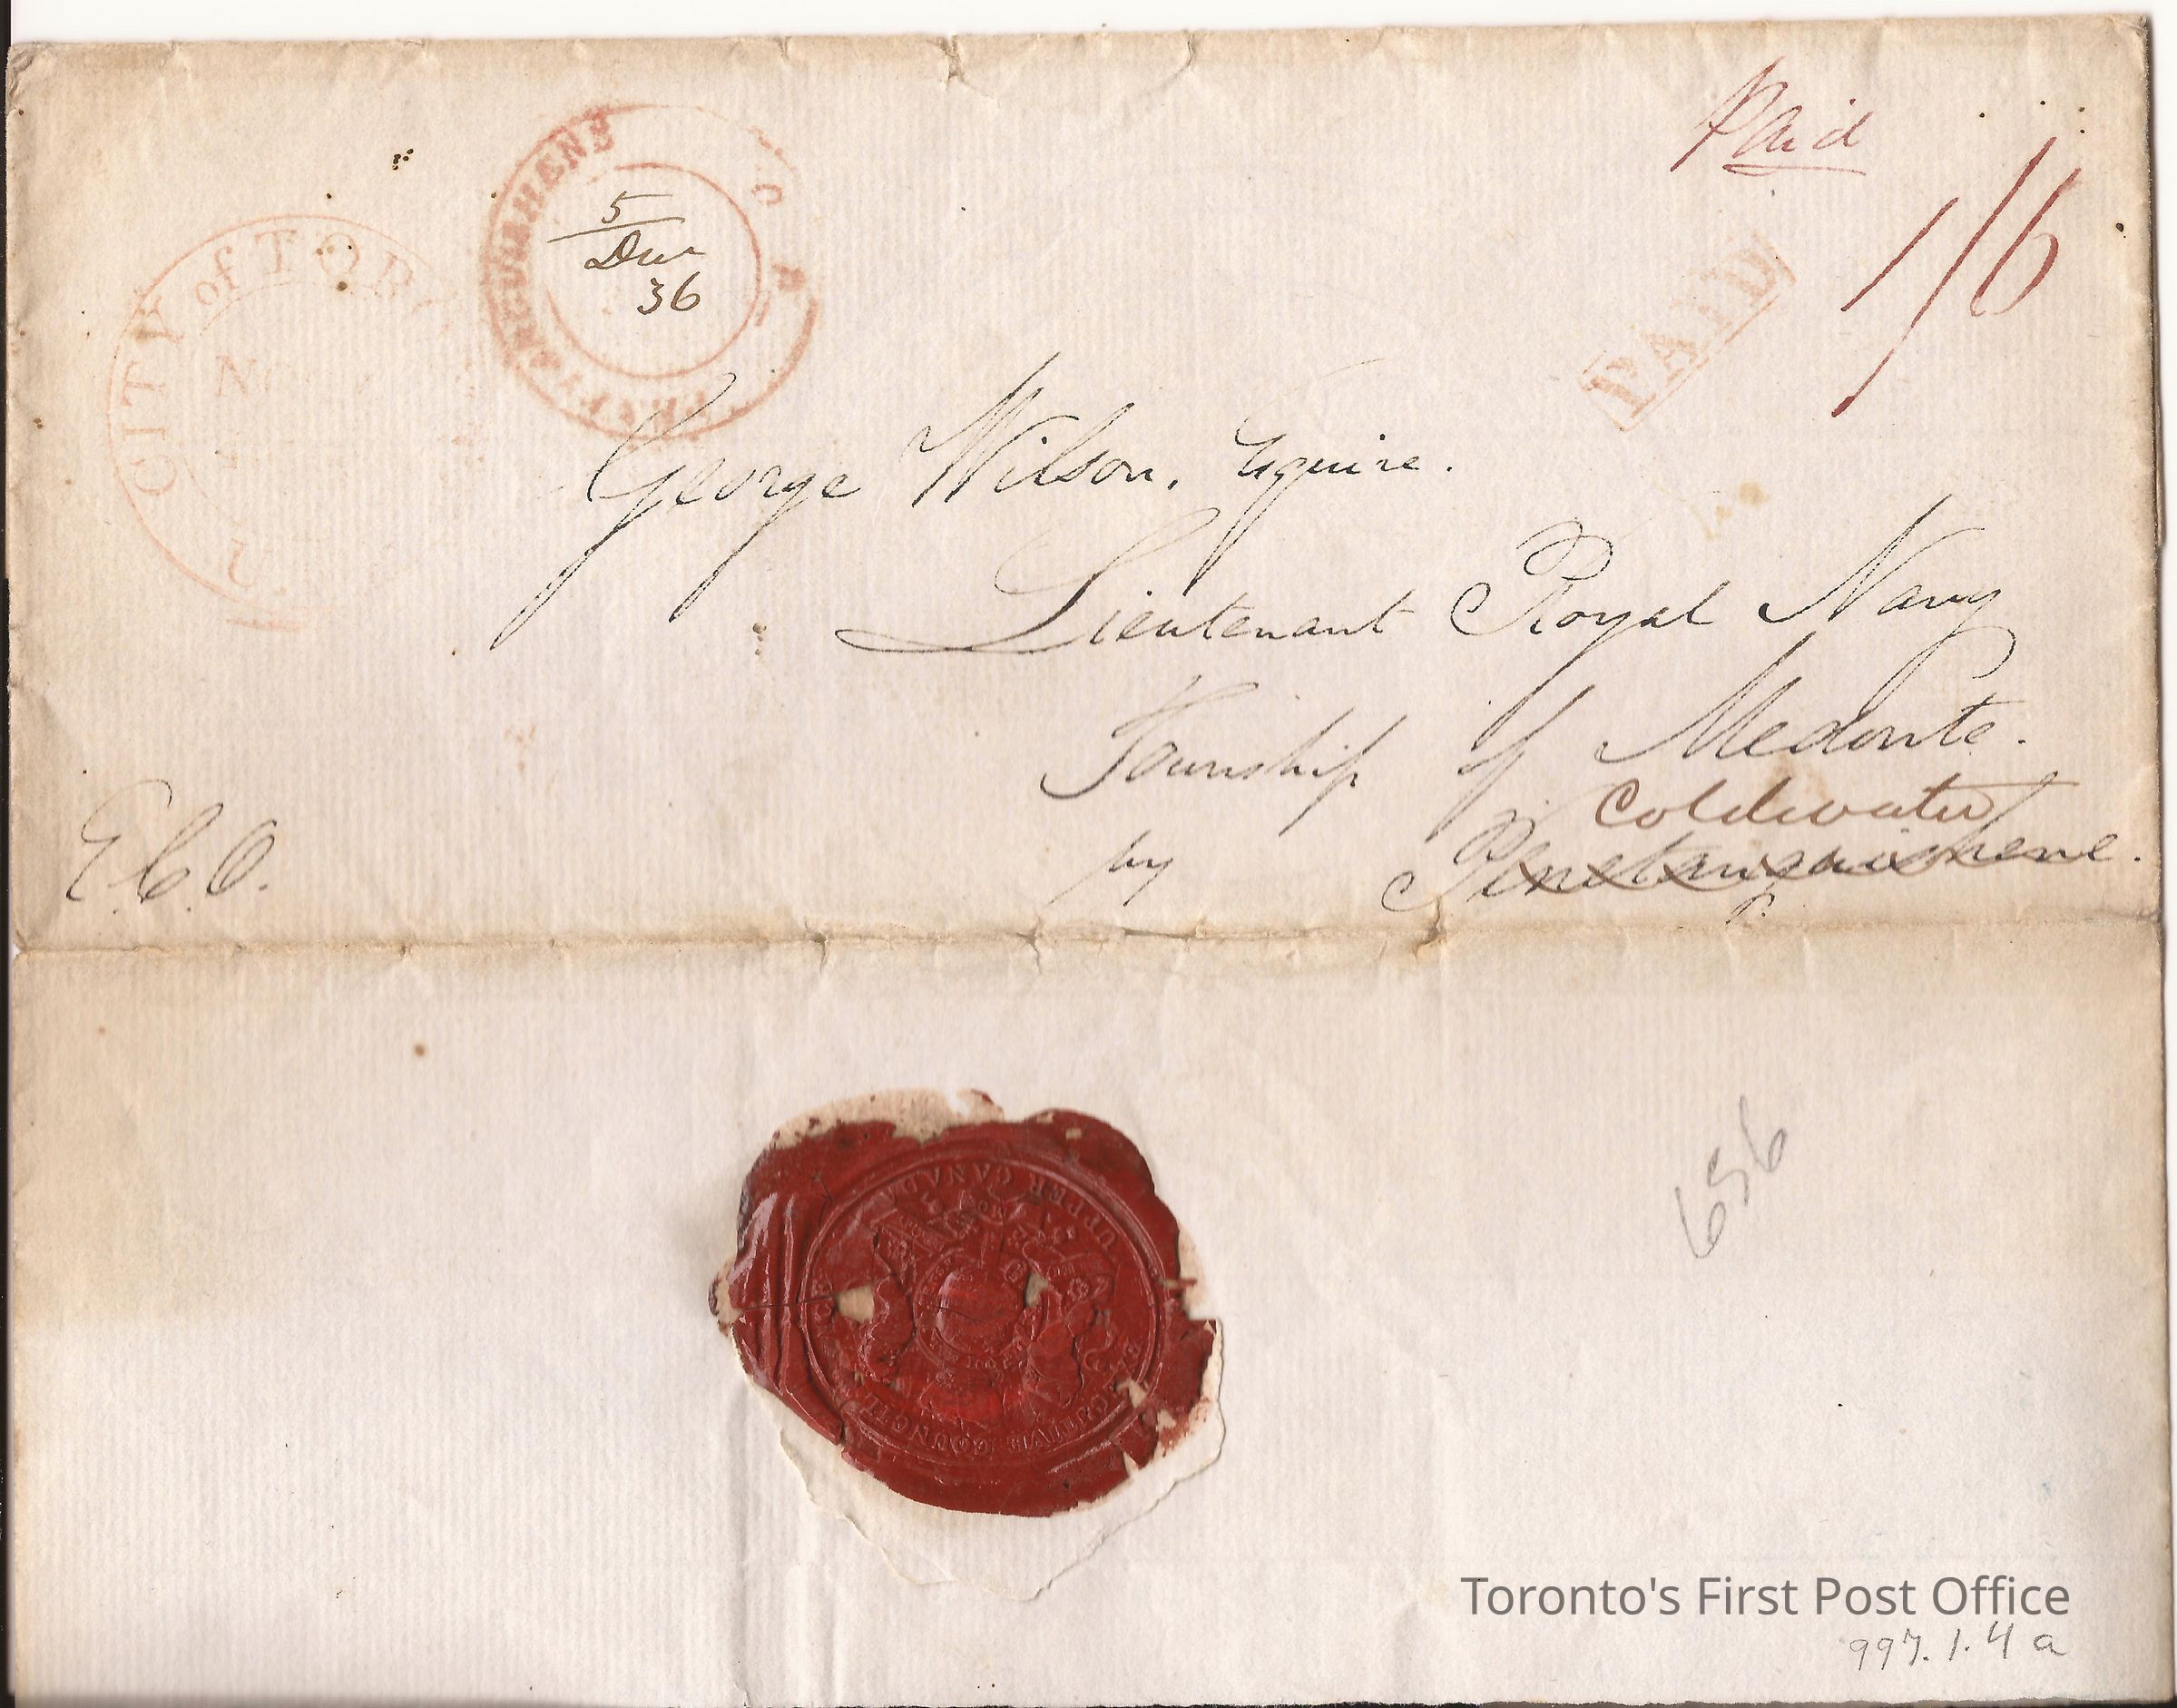 Paid
1/6
PAID
CITY of TOR
5
Dec
36
George Wilson, Esquire.
Lieutenant Royal Navy
Township of Medonte.
Coldwater
by Penetanguishene.
E.C.O.
UPPER CANADA
COUNCIL
656
Toronto's First Post Office
997.1.4 a